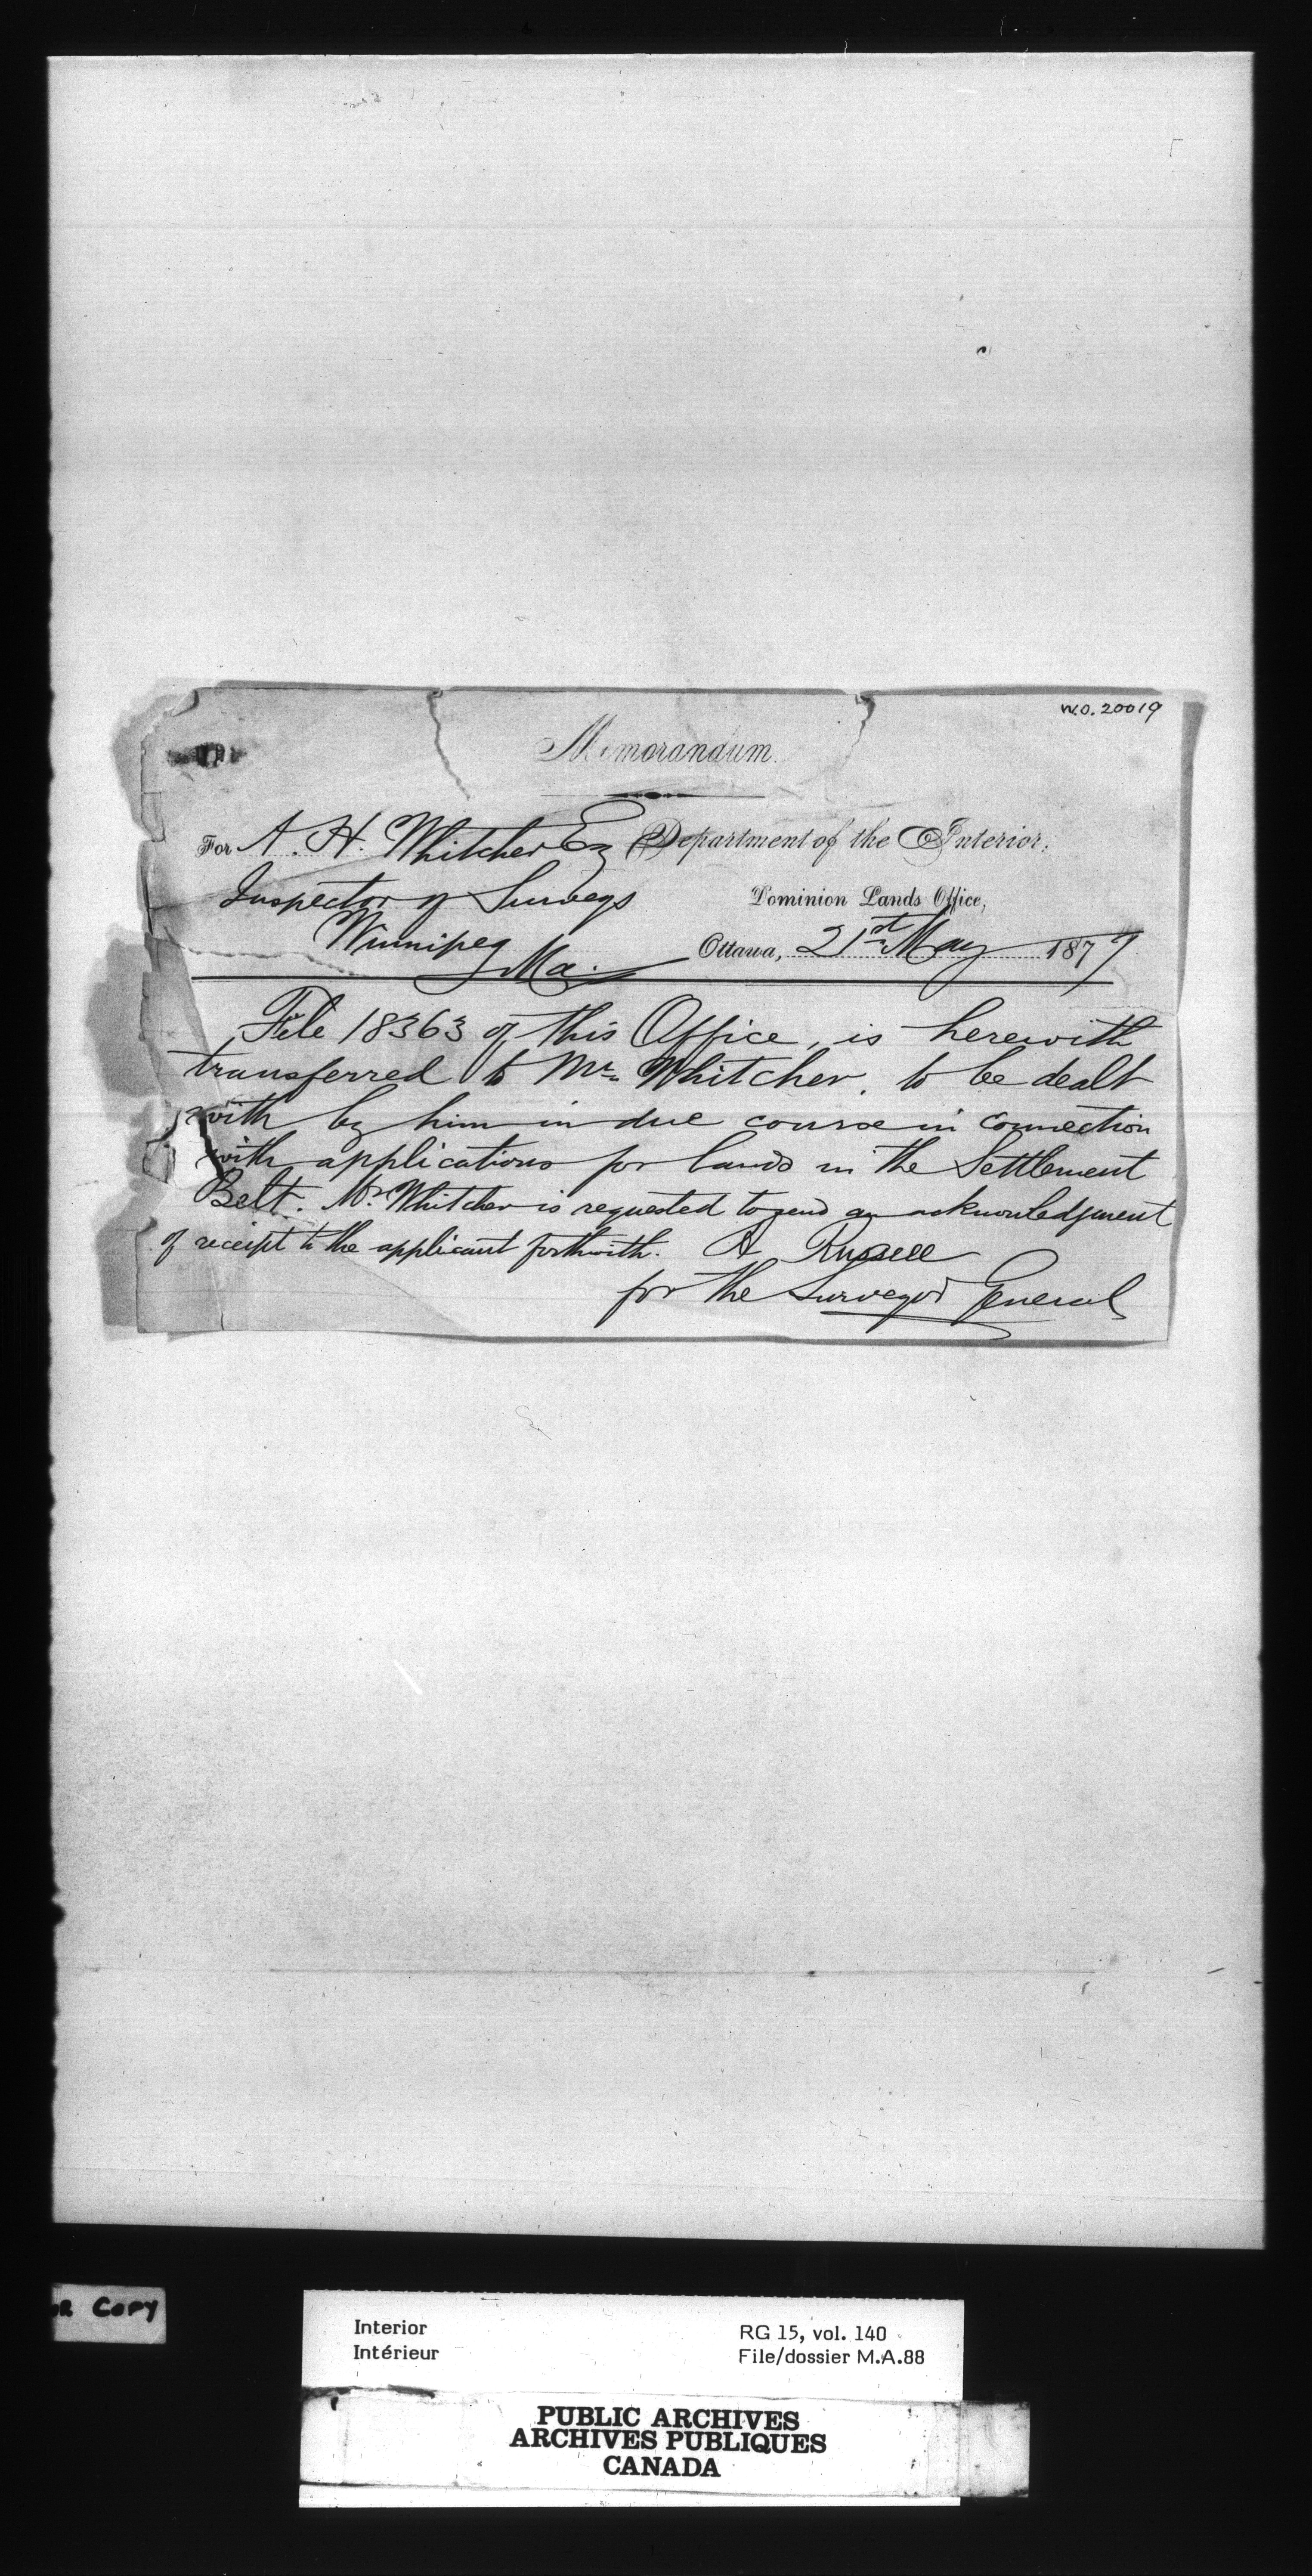 W.O. 20019
Memorandum.
For A. H. Whitcher Esq Department of the Interior,
Inspector of Surveys Dominion Lands Office,
Winnipeg Ottawa, 21st May 1879
Ma.
File 18363 of this Office, is herewith
transferred to Mr. Whitcher, to be dealt
with by him in due course in connection
with applications for lands in the Settlement
Belt. Mr. Whitcher is requested to send an acknowledgment
of receipt to the applicant forthwith. A Russell
for the Surveyor General
OR COPY
Interior RG 15, vol. 140
Intérieur File/dossier M.A.88
PUBLIC ARCHIVES
ARCHIVES PUBLIQUES
CANADA